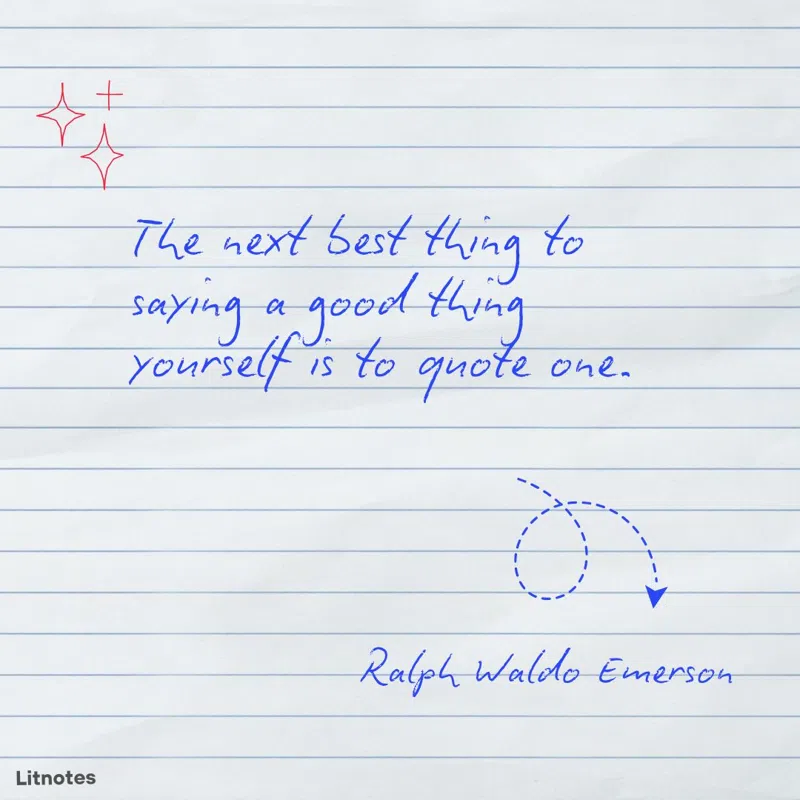 The next best thing to
saying a good thing
yourself is to quote one.
Ralph Waldo Emerson
Litnotes